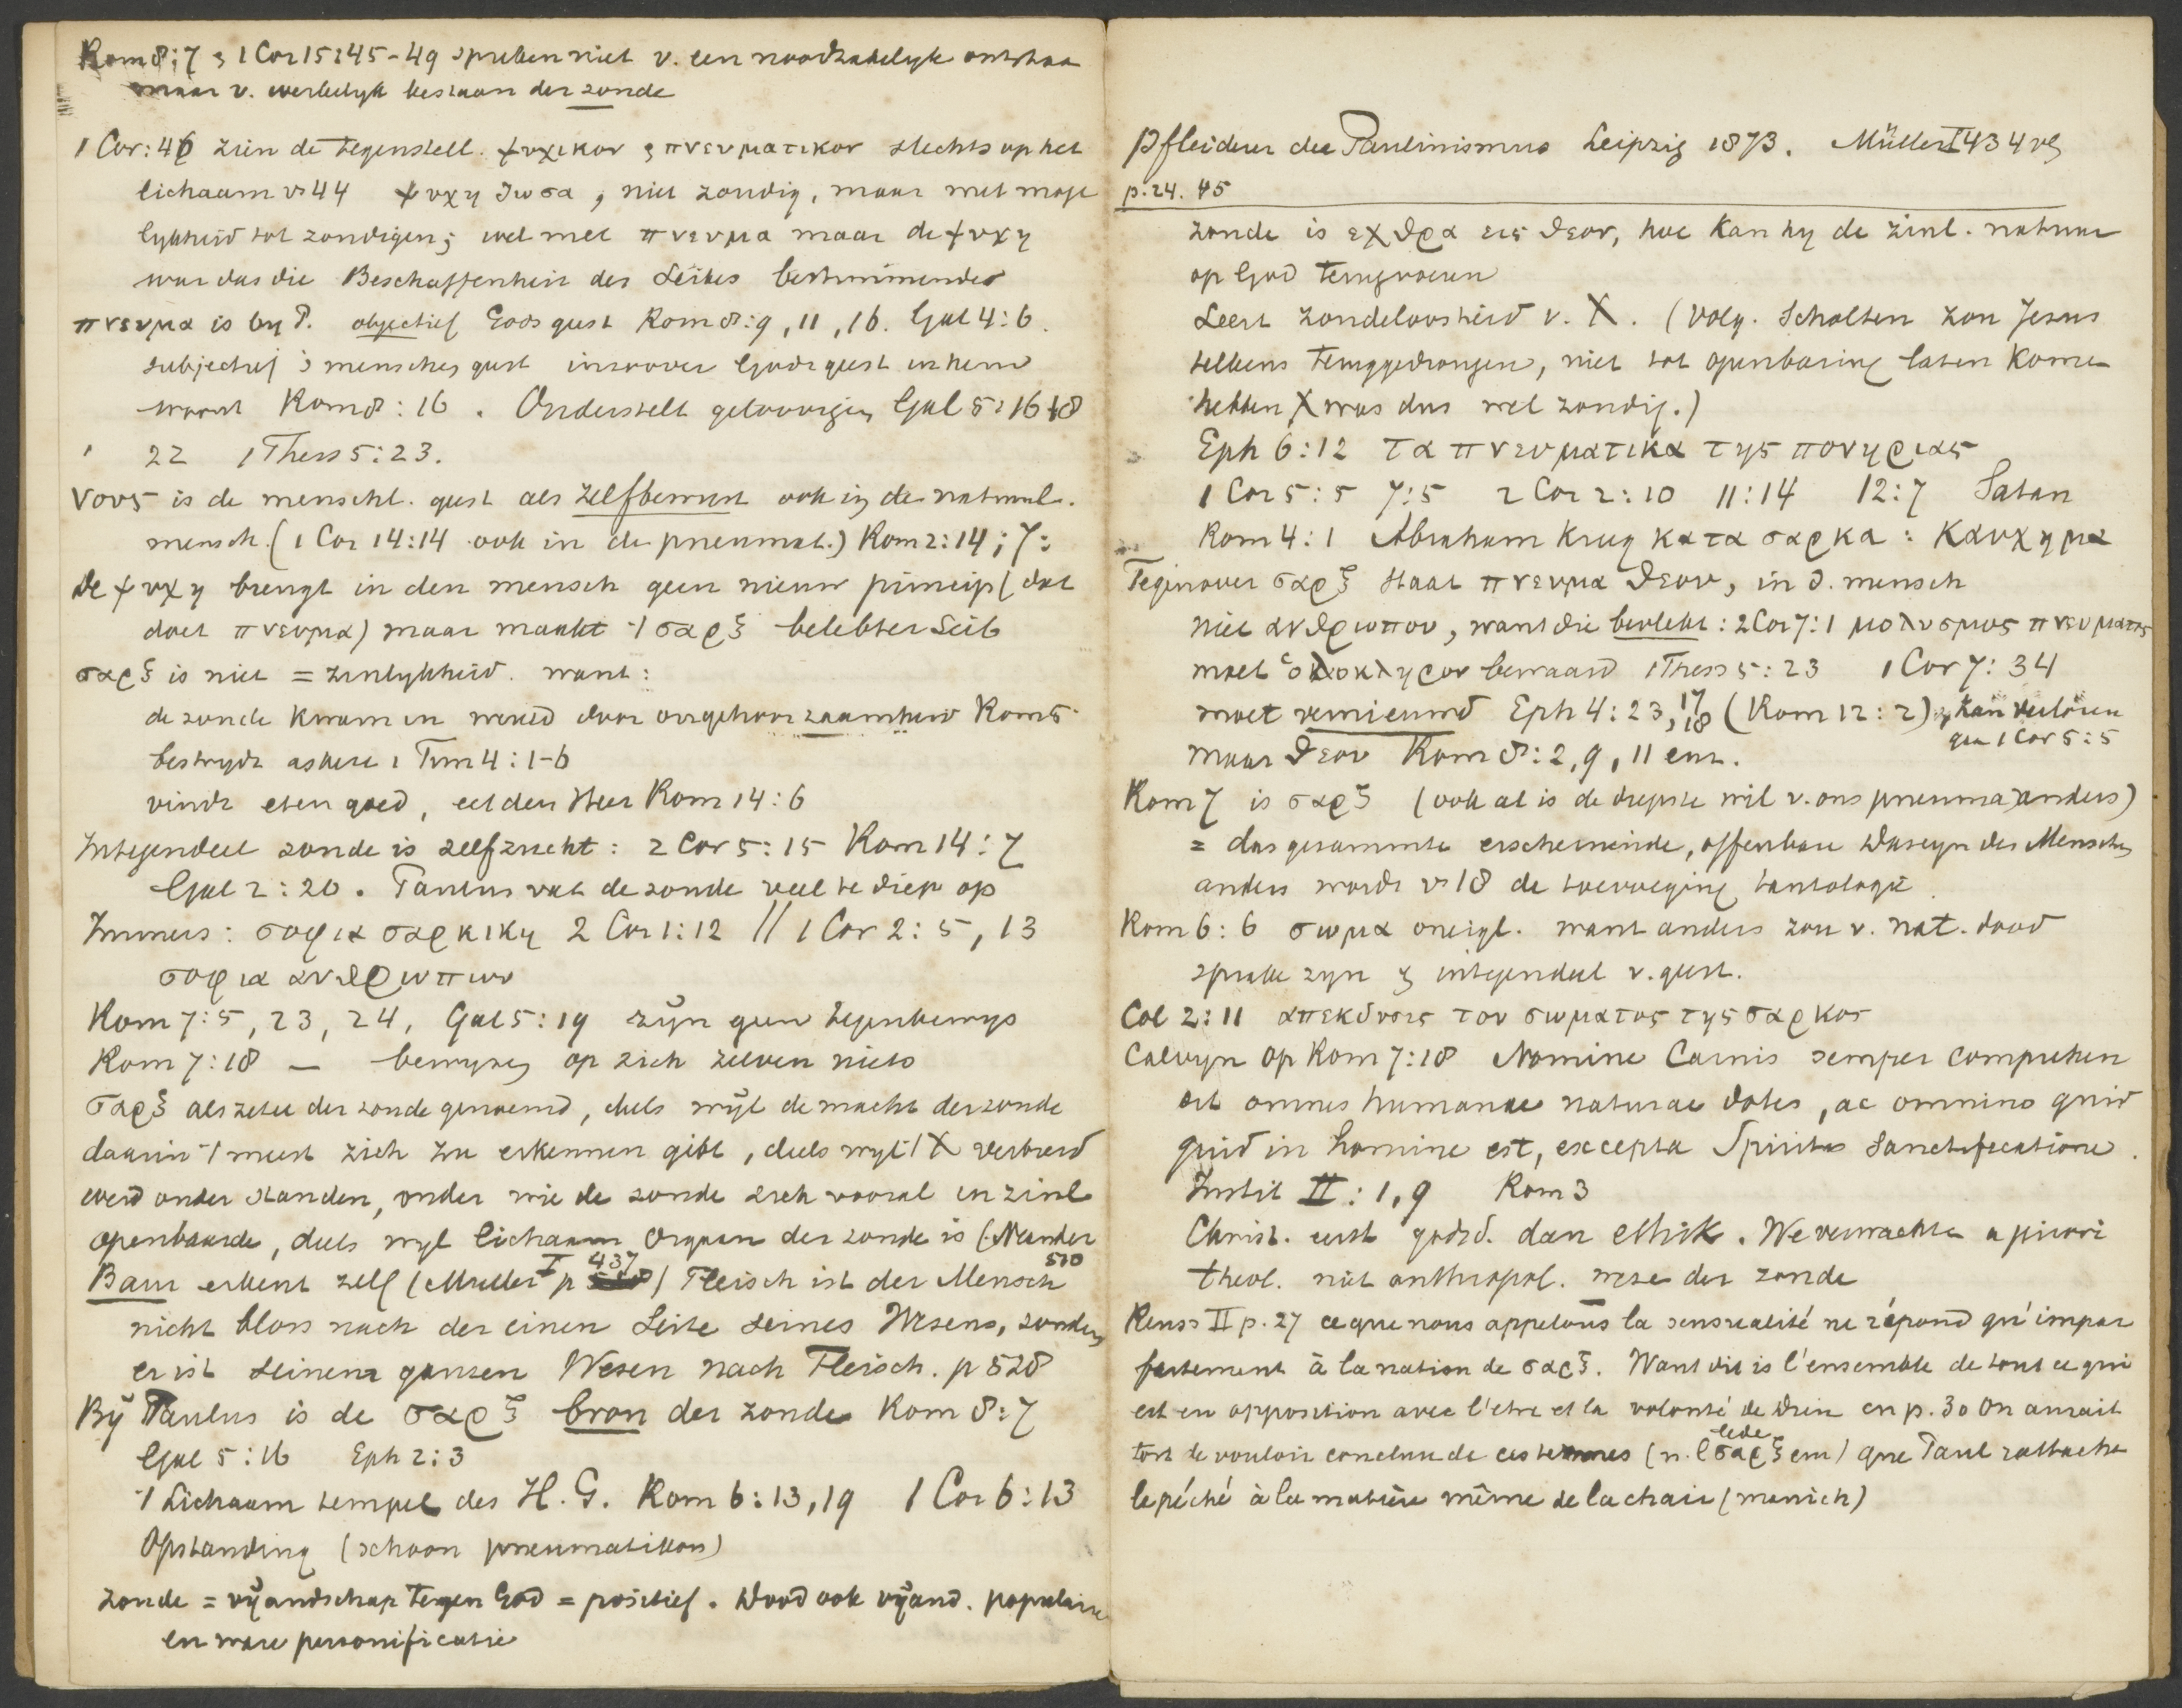 Rom 8:7 & 1 Cor 15:45-49 spreken niet v. een noodzakelyk ontstaa
maar v. werkelyk bestaan der zonde
1 Cor: 46 zien de tegenstell. ψυχικον & πνευματικον slechts op het
lichaam vs 44 ψυχη ζωσα, niet zondig, maar met moge
lykheid tot zondigen; wel met πνευμα maar de ψυχη
war das die Beschaffenheit des Leibes bestimmendes
πνευμα is by P. objectief Gods geest Rom 8:9, 11, 16. Gal 4:6.
subjectief 's menschen geest inzoover Gods geest in hem
woont Rom 8:16. Onderstelt geloovigen Gal 5:16 18
22 1 Thess 5:23.
νους is de menschl. geest als zelfbewust ook in de natuurl.
mensch. (1 Cor 14:14 ook in de pneumat.) Rom 2:14; 7:
de ψυχη brengt in den mensch geen nieuw princip (dat
doet πνευμα) maar maakt 't σαρξ belebter Leib
σαρξ is niet = zinlykheid. want:
de zonde kwam in wereld door ongehoorzaamheid Rom 5
bestrydt askese 1 Tim 4:1-6
vindt eten goed, eet den Heer Rom 14:6
Integendeel zonde is zelfzucht: 2 Cor 5:15 Rom 14:7
Gal 2:20. Paulus vat de zonde veel te diep op
Immers: σοφια σαρκικη 2 Cor 1:12 // 1 Cor 2:5, 13
σοφια ανθρωπων
Rom 7:5, 23, 24, Gal 5:19 zijn geen tegenbewys
Rom 7:18 — bewyzen op zich zelven niets
σαρξ als zetel der zonde genoemd, deels wijl de macht der zonde
daarin 't meest zich te erkennen gibt, deels wyl 't X verbreid
werd onder standen, onder wie de zonde zich vooral in zinl
openbaarde, deels wyl lichaam Orgaan der zonde is (Neander
510
Baur erkent zelf (Muller I p 437) Fleisch ist der Mensch
nicht bloss nach der einen Seite seines Wesens, sondern
er ist seinem ganzen Wesen nach Fleisch. p 528
Bij Paulus is de σαρξ bron der zonde Rom 8:7
Gal 5:16 Eph 2:3
't Lichaam tempel des H. G. Rom 6:13, 19 1 Cor 6:13
Opstanding (schoon pneumatikon)
zonde = vijandschap tegen God = positief. Dood ook vijand. populaire
en ware personificatie
Pfleiderer der Paulinismus Leipzig 1873. Müller I 434 vlg
p. 24. 45
zonde is εχθρα εις θεον, hoe kan hy de zinl. natuur
op God terugvoeren
Leert zondeloosheid v. X. (volg. Scholten zou Jezus
telkens teruggedrongen, niet tot openbaring laten komen
hebben X was dus wel zondig.)
Eph 6:12 τα πνευματικα της πονηριας
1 Cor 5:5 7:5 2 Cor 2:10 11:14 12:7 Satan
Rom 4:1 Abraham kreeg κατα σαρκα: καυχημα
Tegenover σαρξ staat πνευμα θεου, in d. mensch
niet ανθρωπου, want die bevlekt: 2 Cor 7:1 μολυσμος πνευματος
moet ολοκληρον bewaard 1 Thess 5:23 1 Cor 7:34
moet vernieuwd Eph 4:23, 17, 18 (Rom 12:2), kan verloren
gaan 1 Cor 5:5
maar θεου Rom 8:2, 9, 11 enz.
Rom 7 is σαρξ (ook al is de diepste wil v. ons pneuma) anders)
= das gesammte erscheinende, offenbare Daseyn des Menschen
anders wordt vs 18 de toevoeging tautologie.
Rom 6:6 σωμα oneigl. want anders zou v. nat. dood
sprake zyn & integendeel v. geest.
Col 2:11 απεκδυσις του σωματος της σαρκος
Calvyn op Rom 7:18 Nomine Carnis semper comprehen
dit omnes humanae naturae dotes, ac omnino quid
quid in homine est, excepta Spiritus Sanctificatione.
Instit II: 1, 9 Rom 3
Christ. eerst godsd. dan ethik. We verwachten a priori
theol. niet anthropol. wezen der zonde
Reuss II p. 27 ce que nous appelons la sensualité ne répond qu'impar
faitement à la notion de σαρξ. Want dit is l'ensemble de tout ce qui
est en opposition avec l'etre et la volonté de Dieu en p. 30 On aurait
tort de vouloir conclure de ces termes (n.l σαρξ enz) que Paul rattache
le péché à la matière même de la chair (manich)